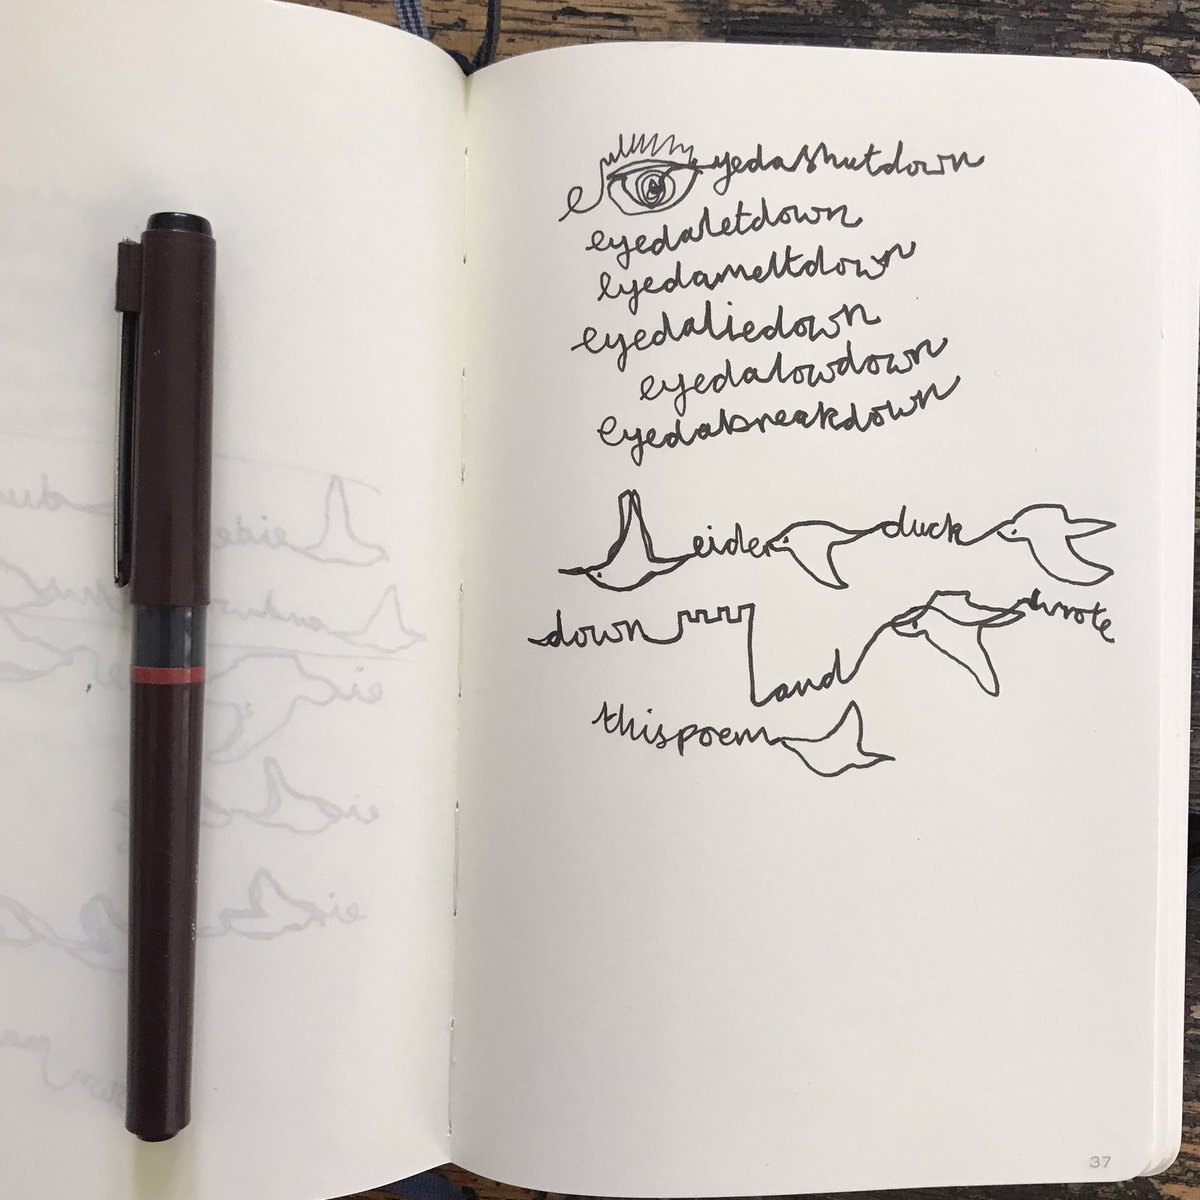 eyedashutdown
eyedaletdown
eyedameltdown
eyedaliedown
eyedalowdown
eyedabreakdown
eider duck
down and wrote
thispoem
37